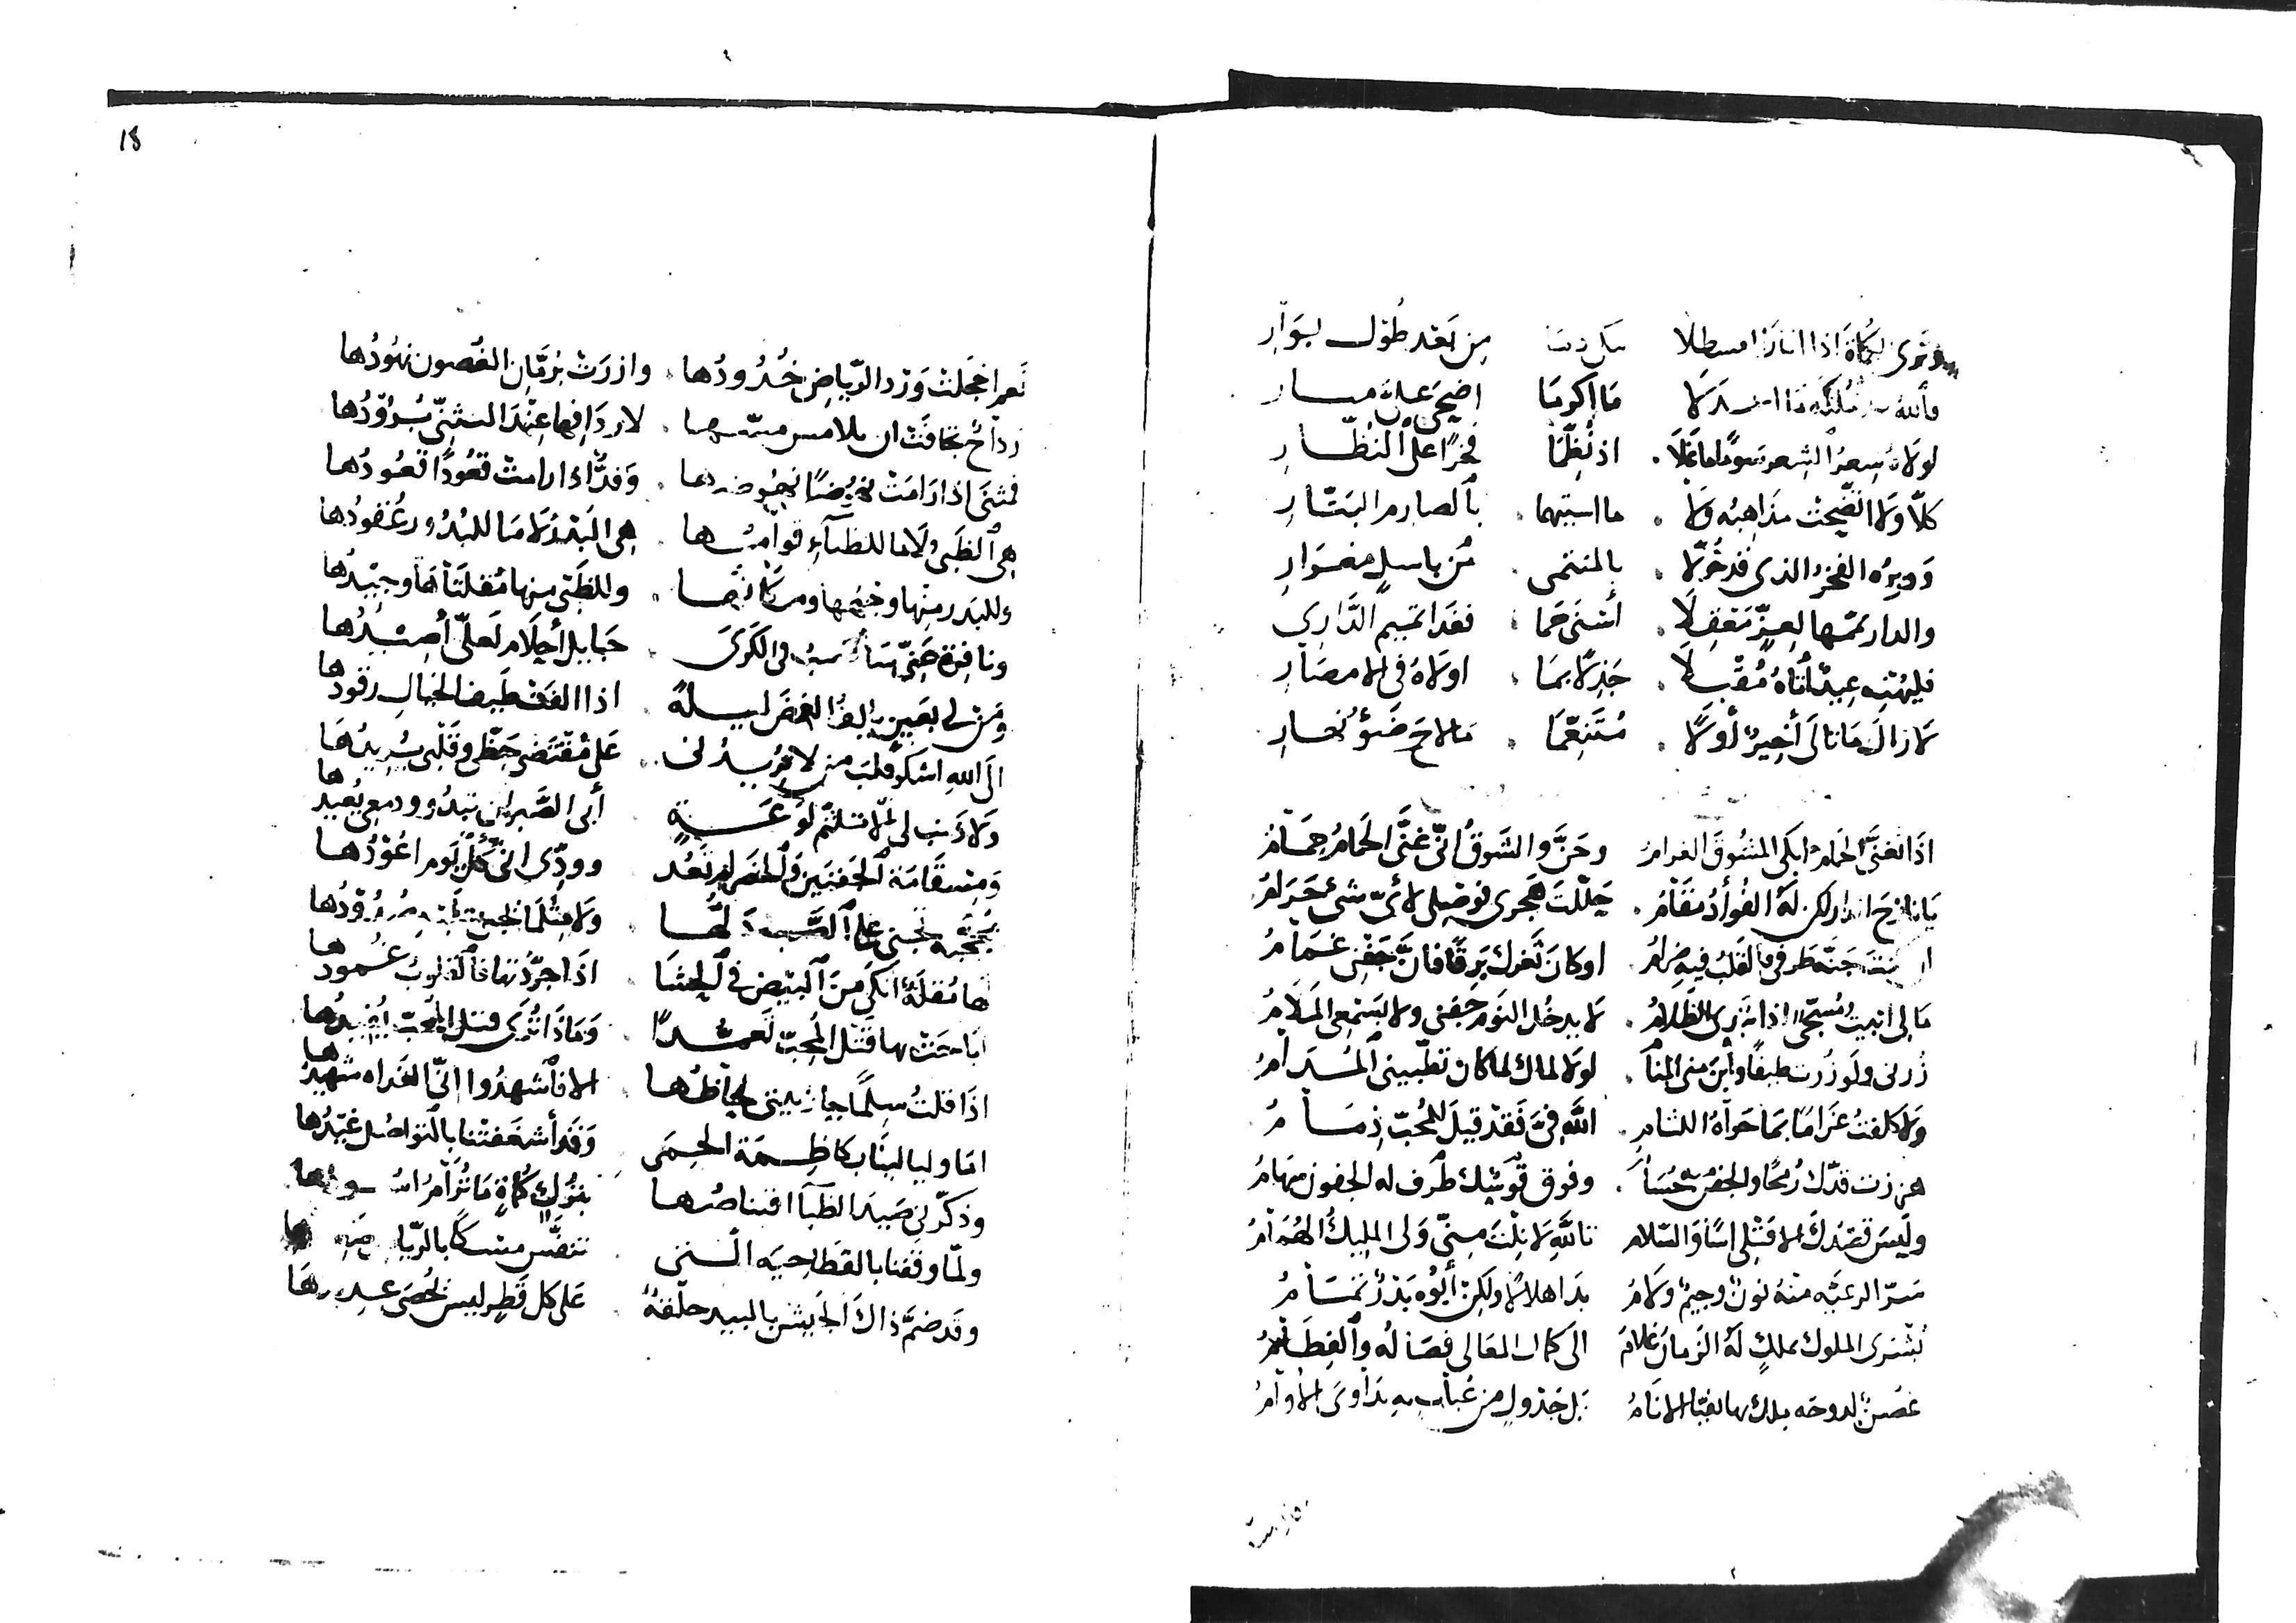 وترى الكماة اذا اثار القسطلا من بعد طول بوار
فالله ما اكرما اضحى على
لولاه سعر الشعر سوما ما غلا اذ نظما فخرا على النظار
كلا ولا اتضحت مذاهبه ولا ما استبهما بالصارم البتار
وحيره الفخر الذي قد خولا بالمنتمى من باسل مغوار
والدار تمها لعز معقلا أسنى حما فغدا تميم الداري
فليهنه عيد أتاه مقبلا جذلا بما اولاه في الامصار
لا زال مانا لى أخير أولا متنعما ما لاح ضوء نهار
اذا تغنى الحمام ابكى المشوق الغرام وحن والشوق انى غنى الحمام حمام
يا نازح الدار لكن له الفؤاد مقام حللت هجرى فوصلى لأى شىء حرام
جنة طرفي فالقلب فيه ضرام اوكان ثغرك برقا فان جفنى غمام
مالى ابيت مسجى اذا تبرى الظلام لا يدخل النوم جفنى ولا بسمعى الملام
زرنى ولو زرت طيفا وأين منى المنام لولا لماك لما كان تطبينى المدام
ولا كلفت غراما بما حواه اللثام الله فى فقد قيل للمحب ذمام
هززت قدك رمحا والخصر منه حسام وفوق قوسك طرف له الجفون سهام
وليس قصدك الا قتلى اسا والسلام تالله لا نلت منى ولى المليك الهمام
سر الرعيه منه نون وجيم ولام بدا هلالا ولكن أبوه بدر تمام
بشرى الملوك بملك له الزمان غلام الى كمال المعالى فصاله والفطام
غصن لدوحه ملك بها تفيا الانام بل جدول من عباب به تداوى الأوام
18
نعم اخجلت ورد الرياض خدودها وازرت برمان الغصون نهودها
رداح تجافت ان يلامس مسها لاردافها عند التثنى برودها
فمثنى اذا رامت نهوضا نهوضها وفدا اذا رامت قعودا قعودها
هي الظبى ولا ما للظباء قوامها هي البدر لا ما للبدور عقودها
وللبدر منها وجهها ومكانها وللظبى منها مقلتاها وجيدها
ونافرة حتى فى الكرى حبايل أحلام لعلى أصيدها
ومن لى بعين الغمض ليلة اذا الفت طيف الخيال رقودها
الى الله اشكو قلب من لا يريدنى على مقتضى حظى وقلبى يريدها
ولا ذنب لى الا تلثم لوعة أبى الصبر ان تبدو ودمعى يعيدها
ومن سقامة الجفنين والخصر لم تعد وودى انى كل يوم اعودها
محجبة تجنى على الصب دلها ولا مثلما تجنى عليه صدودها
لها مقلة انكى من البيض في الحشا اذا جردتها فالقلوب غمودها
اباحت بها قتل المحب تعمدا وماذا ترى قتل المحب يفيدها
اذا قلت سلما جاذبتنى لحاظها الا فاشهدوا انى الغداة شهيدها
اما وليالينا بكاظمة الحمى وقد أشغفتنا بالتواصل غيدها
وذكرنى صيد الظبا اقتناصها بترك كماة ما ترام
ولما وقفنا بالقطا حيه السنى تنفس مسكا بالربا
وقد ضم ذاك الجيش بالبيد حلقة على كل قطر ليس يحصى عديدها